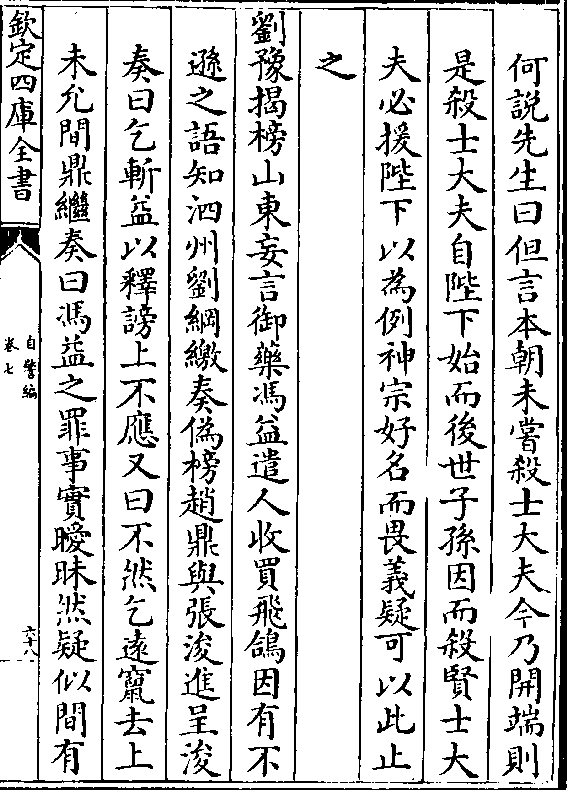 何說先生曰但言本朝未嘗殺士大夫今乃開端則
是殺士大夫自陛下始而後世子孫因而殺賢士大
夫必援陛下以為例神宗好名而畏義疑可以此止
之
劉豫揭榜山東妄言御藥馮益遣人收買飛鴿因有不
遜之語知泗州劉綱繳奏偽榜趙鼎與張浚進呈浚
奏曰乞斬益以釋謗上不應又曰不然乞遠竄去上
未允間鼎繼奏曰馮益之罪事實曖昧然疑似間有
欽定四庫全書
自警編
卷七
六十八